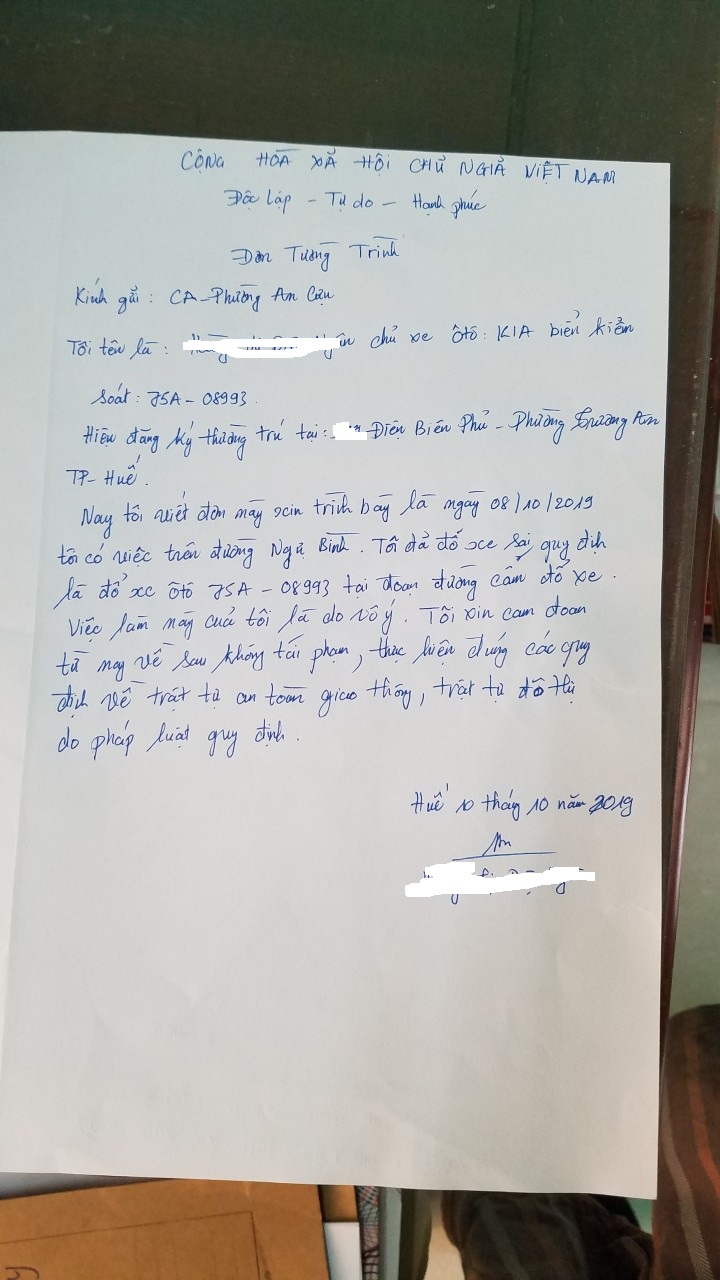 CỘNG HÒA XÃ HỘI CHỦ NGHĨA VIỆT NAM
Độc lập - Tự do - Hạnh phúc
Đơn Tường Trình
Kính gửi: CA-Phường An Cựu
Tôi tên là: chủ xe ôtô: KIA biển kiểm
soát: 75A-08993.
Hiện đăng ký thường trú tại: Điện Biên Phủ - Phường Trường An
TP-Huế.
Nay tôi viết đơn này xin trình bày là ngày 08/10/2019
tôi có việc trên đường Ngự Bình. Tôi đã đỗ xe sai quy định
là đỗ xe ôtô 75A-08993 tại đoạn đường cấm đỗ xe.
Việc làm này của tôi là do vô ý. Tôi xin cam đoan
từ nay về sau không tái phạm, thực hiện đúng các quy
định về trật tự an toàn giao thông, trật tự đô thị
do pháp luật quy định.
Huế 10 tháng 10 năm 2019